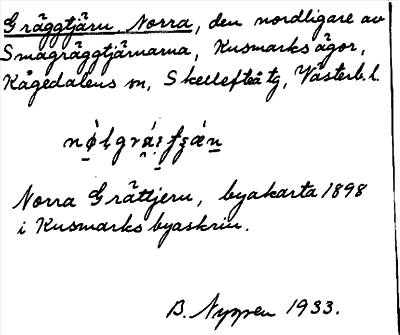 Gräggtjärn Norra, den nordligare av
Smågräggtjärnarna, Kusmarks ägor,
Kågedalens sn, Skellefteå tg, Västerb. l.
Norra Grättjern, byakarta 1898
i Kusmarks byaskrin.
B. Nyppen 1933.